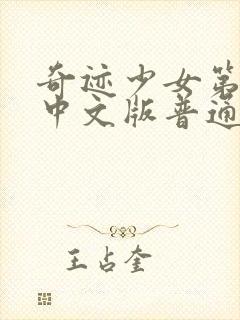 奇迹少女第
中文版普通
王占奎